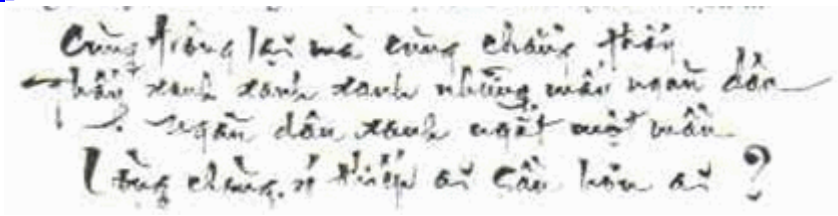 Cùng trông lại mà cùng chẳng thấy
Thấy xanh xanh xanh những mấy ngàn dâu
Ngàn dâu xanh ngắt một mầu
Lòng chàng, ý thiếp ai sầu hơn ai ?